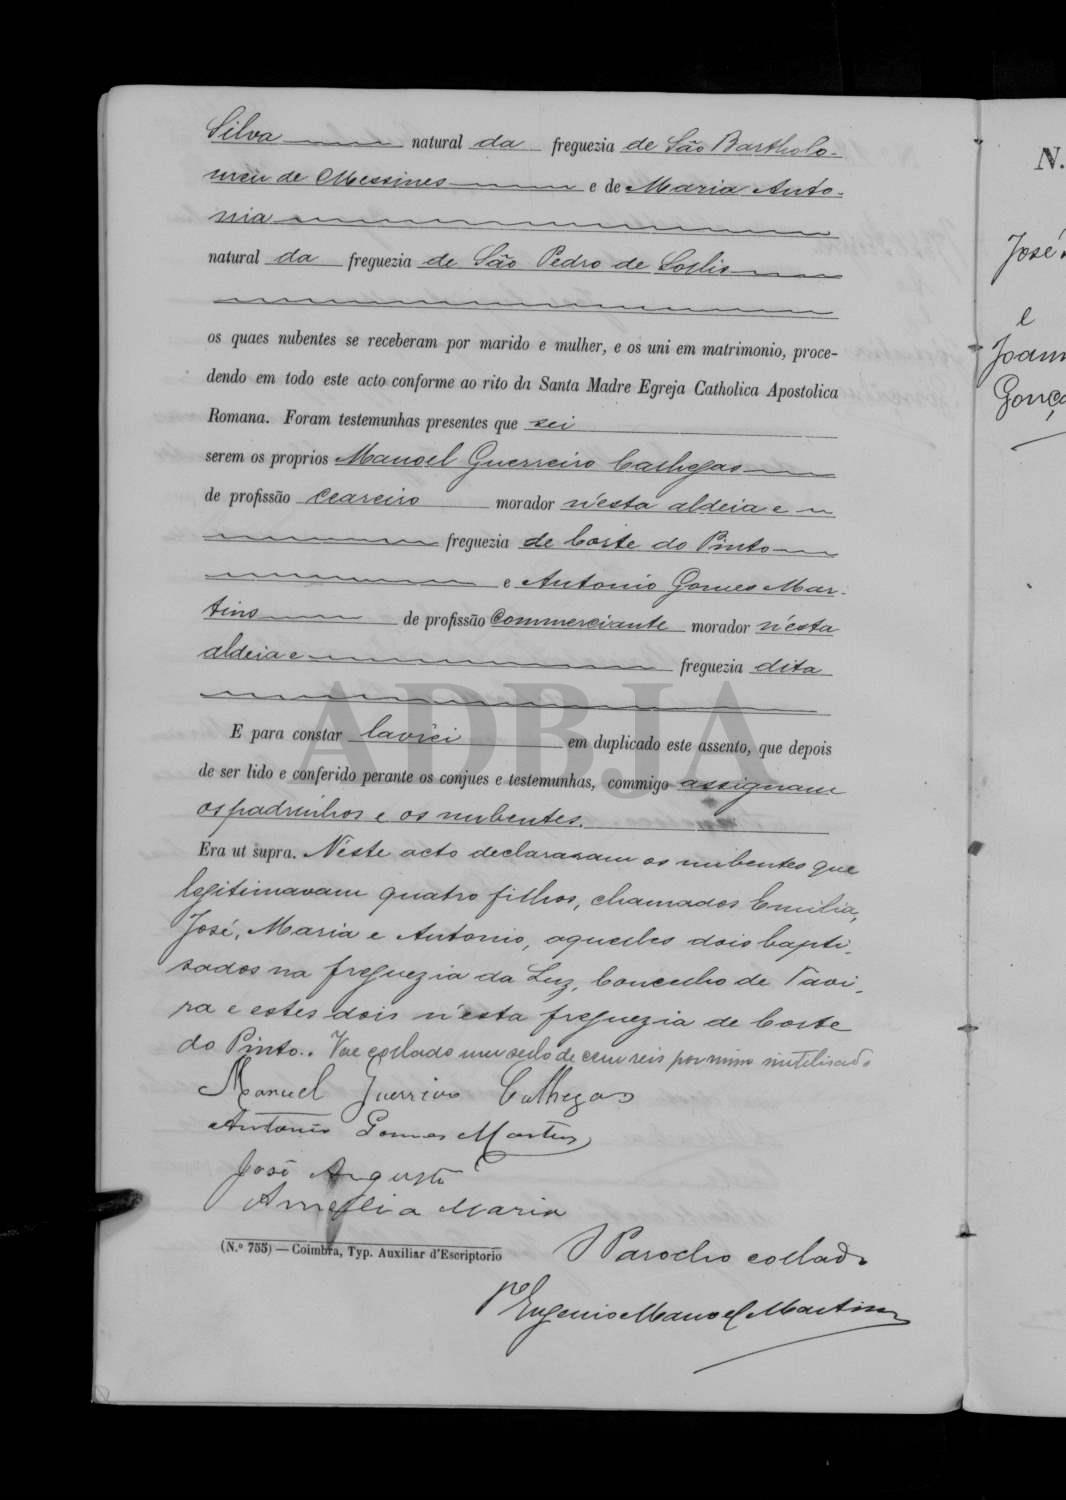 Silva natural da freguezia de São Bartholo-
meu de Messines e de Maria Anto-
nia
natural da freguezia de São Pedro de
os quaes nubentes se receberam por marido e mulher, e os uni em matrimonio, proce-
dendo em todo este acto conforme ao rito da Santa Madre Egreja Catholica Apostolica
Romana. Foram testemunhas presentes que sei
serem os proprios Manoel Guerreiro Calhegas
de profissão ceareiro morador n'esta aldeia e
freguezia de Corte do Pinto
e Antonio Gomes Mar-
tins de profissão commerciante morador n'esta
aldeia e freguezia dita
ADBJA
E para constar lavrei em duplicado este assento, que depois
de ser lido e conferido perante os conjues e testemunhas, commigo assignam
os padrinhos e os nubentes.
Era ut supra. Néste acto declararam os nubentes que
legitimavam quatro filhos, chamados Emilia,
José, Maria e Antonio, aquelles dois bapti-
sados na freguezia da Luz, Concelho de Tavi-
ra e estes dois n'esta freguezia de Corte
do Pinto. Vae collado um sello de cem reis por mim inutilisado
Manuel Guerreiro Calhegas
Antonio Gomes Martins
José Augusto
Amelia Maria
(N.º 755) — Coimbra, Typ. Auxiliar d'Escriptorio
O Parocho collado
Pe Eugenio Manoel Martins
N.
José
e
Joann
Gonça